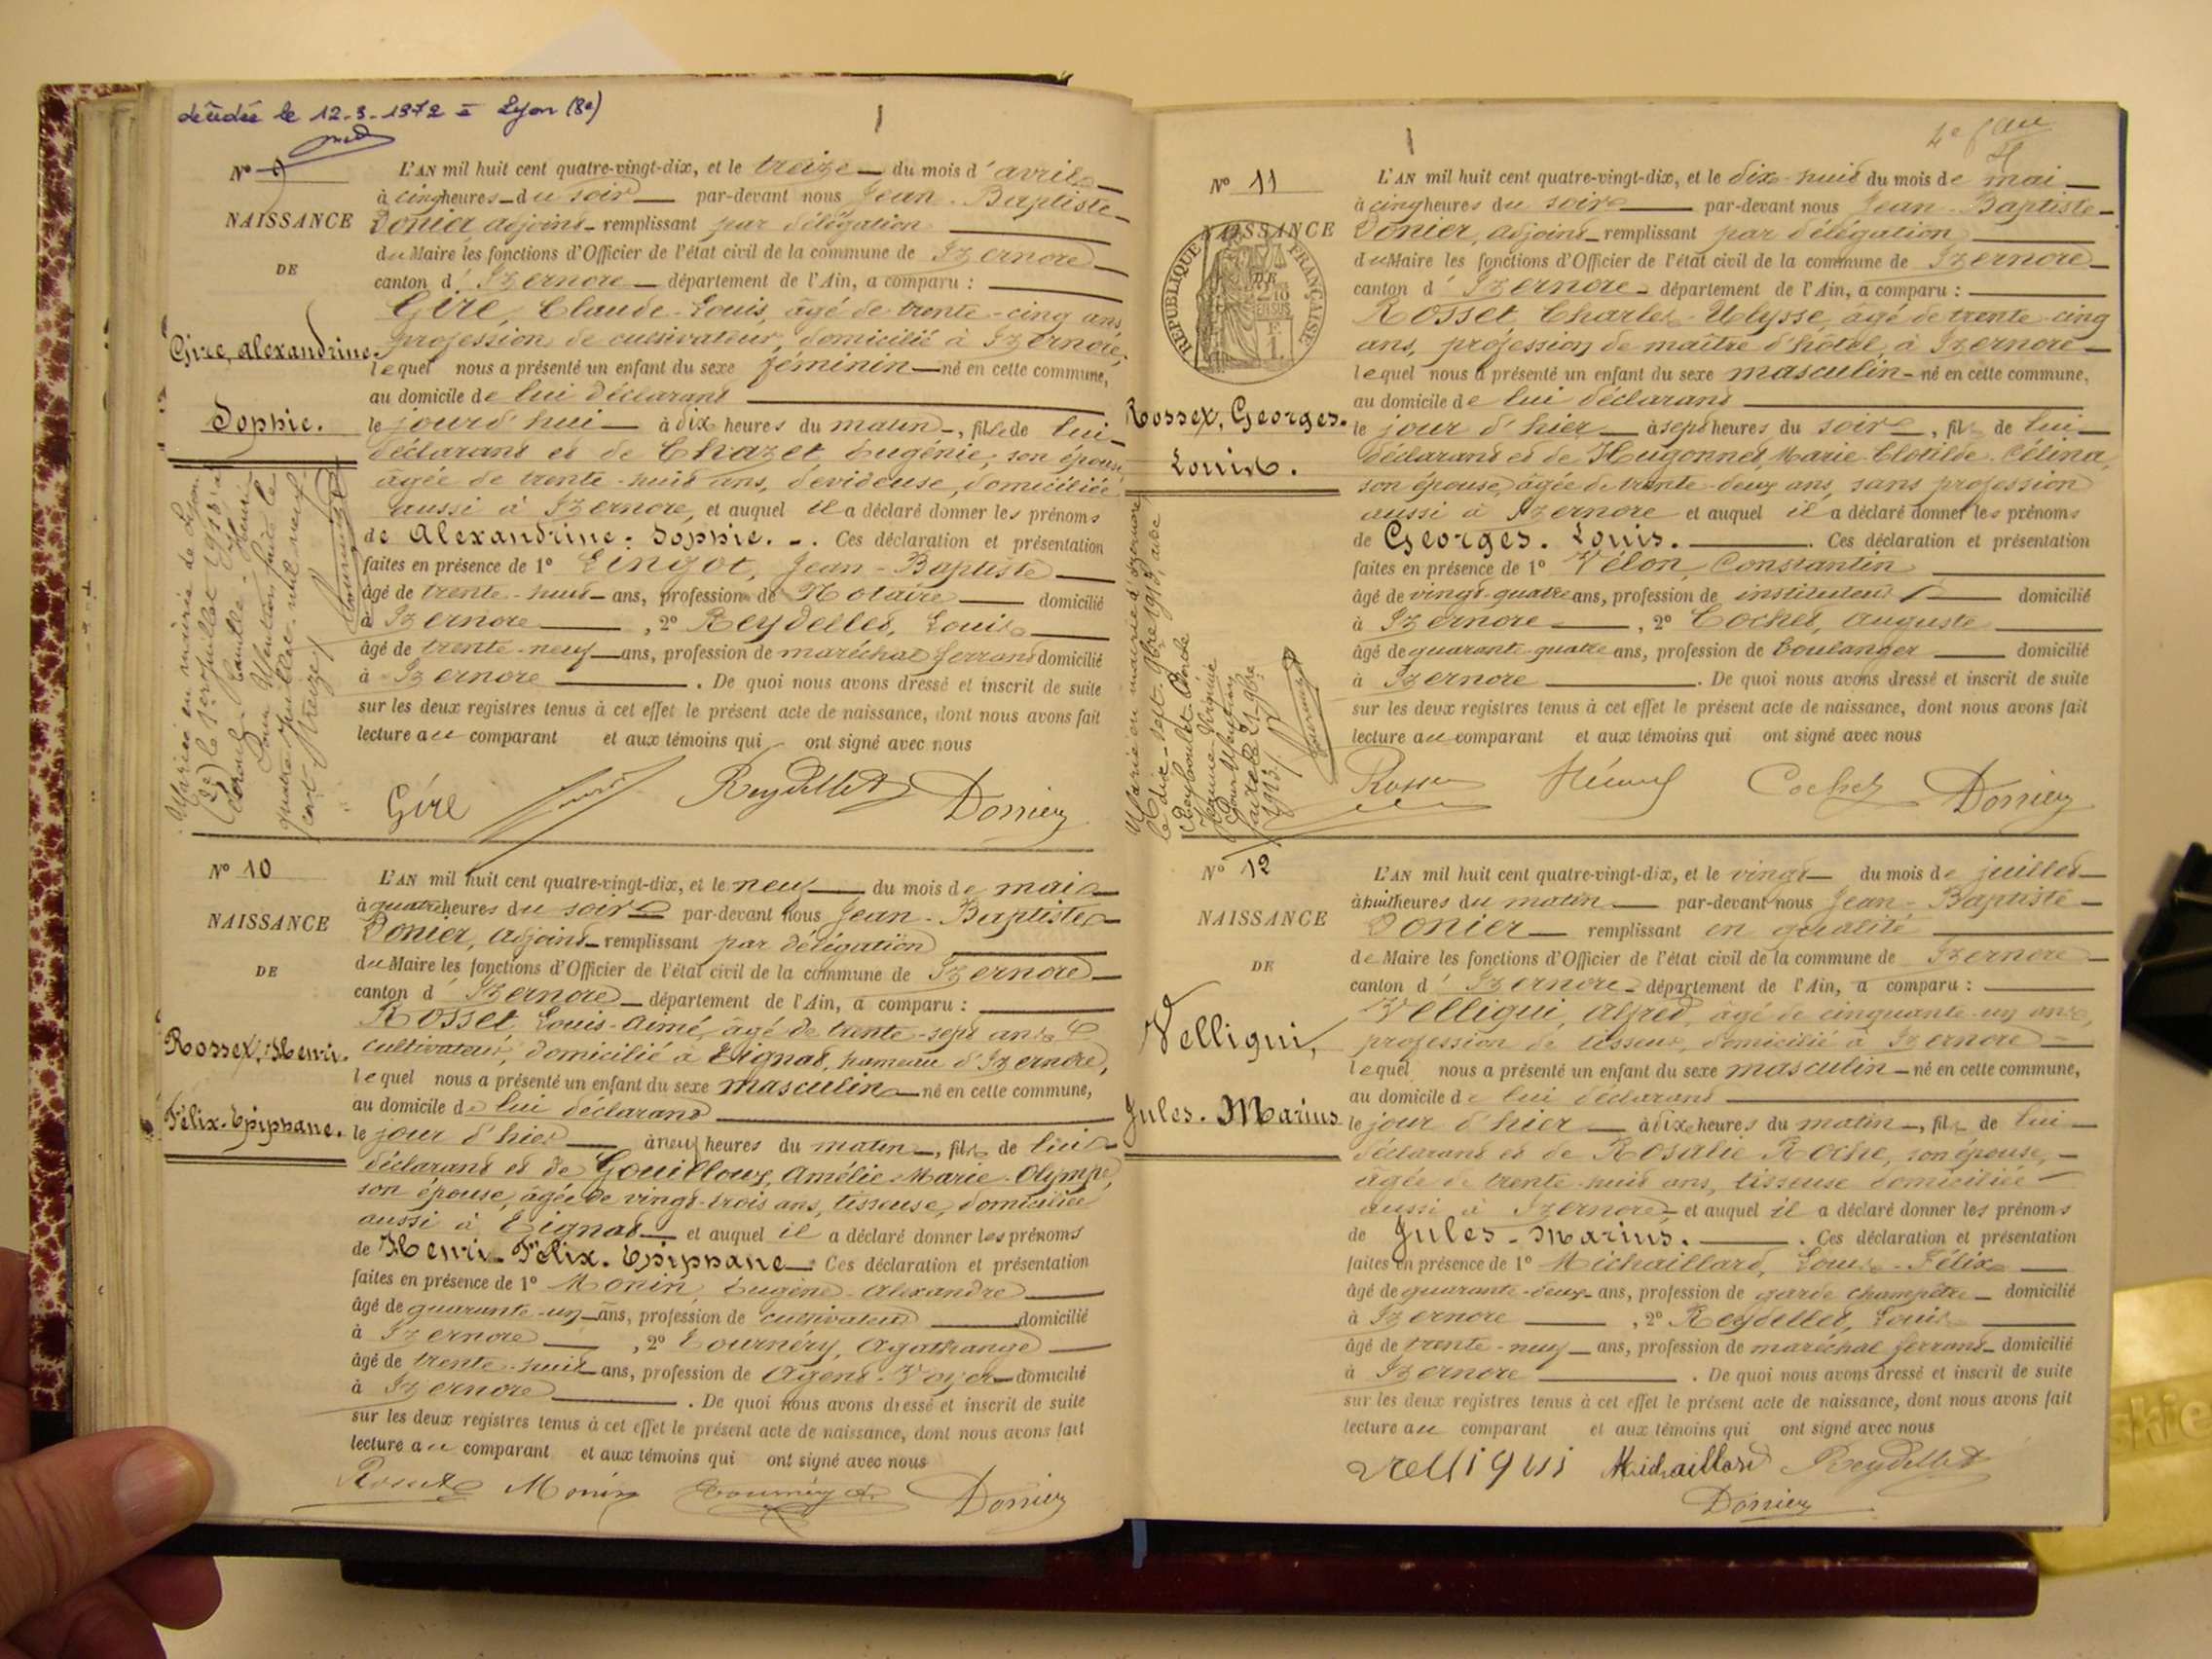 décédée le 12-3-1972 à Lyon (8e)
No 9
NAISSANCE
DE
Gire, Alexandrine.
Sophie.
L'AN mil huit cent quatre-vingt-dix, et le treize du mois d'avril
à cinq heures du soir par-devant nous Jean-Baptiste
Donier, adjoint remplissant par délégation
du Maire les fonctions d'Officier de l'état civil de la commune de Izernore
canton d'Izernore département de l'Ain, a comparu :
Gire, Claude-Louis, âgé de trente-cinq ans,
profession de cultivateur, domicilié à Izernore,
lequel nous a présenté un enfant du sexe féminin né en cette commune,
au domicile de lui déclarant
le jourd'hui à dix heures du matin, fille de lui
déclarant et de Chazet Eugénie, son épouse,
âgée de trente-huit ans, dévideuse, domiciliée
aussi à Izernore, et auquel il a déclaré donner les prénoms
de Alexandrine. Sophie. Ces déclaration et présentation
faites en présence de 1o Lingot, Jean-Baptiste
âgé de trente-huit ans, profession de Notaire domicilié
à Izernore, 2o Reydellet, Louis
âgé de trente-neuf ans, profession de maréchal ferrant domicilié
à Izernore. De quoi nous avons dressé et inscrit de suite
sur les deux registres tenus à cet effet le présent acte de naissance, dont nous avons fait
lecture au comparant et aux témoins qui ont signé avec nous
Gire Reydellet Donier
Mariée en mairie de Lyon
(2e) le 1er juillet 1913 à
Camille Henri
Pour Mention faite le
quatre juillet mil neuf
cent treize
No 10
NAISSANCE
DE
Rosset, Henri.
Félix-Epiphane.
L'AN mil huit cent quatre-vingt-dix, et le neuf du mois de mai
à quatre heures du soir par-devant nous Jean-Baptiste
Donier, adjoint remplissant par délégation
du Maire les fonctions d'Officier de l'état civil de la commune de Izernore
canton d'Izernore département de l'Ain, a comparu :
Rosset Louis-Aimé, âgé de trente-sept ans
cultivateur, domicilié à Tignat, hameau d'Izernore,
lequel nous a présenté un enfant du sexe masculin né en cette commune,
au domicile de lui déclarant
le jour d'hier à neuf heures du matin, fils de lui
déclarant et de Gouilloux, Amélie-Marie-Olympe,
son épouse, âgée de vingt-trois ans, tisseuse, domiciliée
aussi à Tignat et auquel il a déclaré donner les prénoms
de Henri-Félix-Epiphane Ces déclaration et présentation
faites en présence de 1o Monin, Eugène-Alexandre
âgé de quarante-un ans, profession de cultivateur domicilié
à Izernore, 2o Tournéry, Agathange
âgé de trente-huit ans, profession de Agent-Voyer domicilié
à Izernore. De quoi nous avons dressé et inscrit de suite
sur les deux registres tenus à cet effet le présent acte de naissance, dont nous avons fait
lecture au comparant et aux témoins qui ont signé avec nous
Rosset Monin Tournéry Donier
No 11
NAISSANCE
DE
REPUBLIQUE FRANÇAISE
Rosset, Georges.
Louis.
L'AN mil huit cent quatre-vingt-dix, et le dix-huit du mois de mai
à cinq heures du soir par-devant nous Jean-Baptiste
Donier, adjoint remplissant par délégation
du Maire les fonctions d'Officier de l'état civil de la commune de Izernore
canton d'Izernore département de l'Ain, a comparu :
Rosset, Charles-Ulysse, âgé de trente-cinq
ans, profession de maître d'hôtel, à Izernore
lequel nous a présenté un enfant du sexe masculin né en cette commune,
au domicile de lui déclarant
le jour d'hier à sept heures du soir, fils de lui
déclarant et de Hugonnet, Marie-Clotilde-Célina,
son épouse, âgée de trente-deux ans, sans profession
aussi à Izernore et auquel il a déclaré donner les prénoms
de Georges. Louis. Ces déclaration et présentation
faites en présence de 1o Vélon, Constantin
âgé de vingt-quatre ans, profession de instituteur domicilié
à Izernore, 2o Cochet, Auguste
âgé de quarante-quatre ans, profession de boulanger domicilié
à Izernore. De quoi nous avons dressé et inscrit de suite
sur les deux registres tenus à cet effet le présent acte de naissance, dont nous avons fait
lecture au comparant et aux témoins qui ont signé avec nous
Cochet Donier
Marié en mairie d'Izernore
le dix-sept 9bre 1913, avec
Pour Mention
faite le 21 9bre
1913
No 12
NAISSANCE
DE
Velliqui,
Jules-Marius
L'AN mil huit cent quatre-vingt-dix, et le vingt du mois de juillet
à huit heures du matin par-devant nous Jean-Baptiste
Donier remplissant en qualité
de Maire les fonctions d'Officier de l'état civil de la commune de Izernore
canton d'Izernore département de l'Ain, a comparu :
Velliqui, Alfred, âgé de cinquante-un ans,
profession de tisseur, domicilié à Izernore
lequel nous a présenté un enfant du sexe masculin né en cette commune,
au domicile de lui déclarant
le jour d'hier à dix heures du matin, fils de lui
déclarant et de Rosalie Roche, son épouse,
âgée de trente-huit ans, tisseuse domiciliée
aussi à Izernore et auquel il a déclaré donner les prénoms
de Jules-Marius. Ces déclaration et présentation
faites en présence de 1o Michaillard, Louis-Félix
âgé de quarante-deux ans, profession de garde champêtre domicilié
à Izernore, 2o Reydellet, Louis
âgé de trente-neuf ans, profession de maréchal ferrant domicilié
à Izernore. De quoi nous avons dressé et inscrit de suite
sur les deux registres tenus à cet effet le présent acte de naissance, dont nous avons fait
lecture au comparant et aux témoins qui ont signé avec nous
Velliqui Michaillard Reydellet
Donier